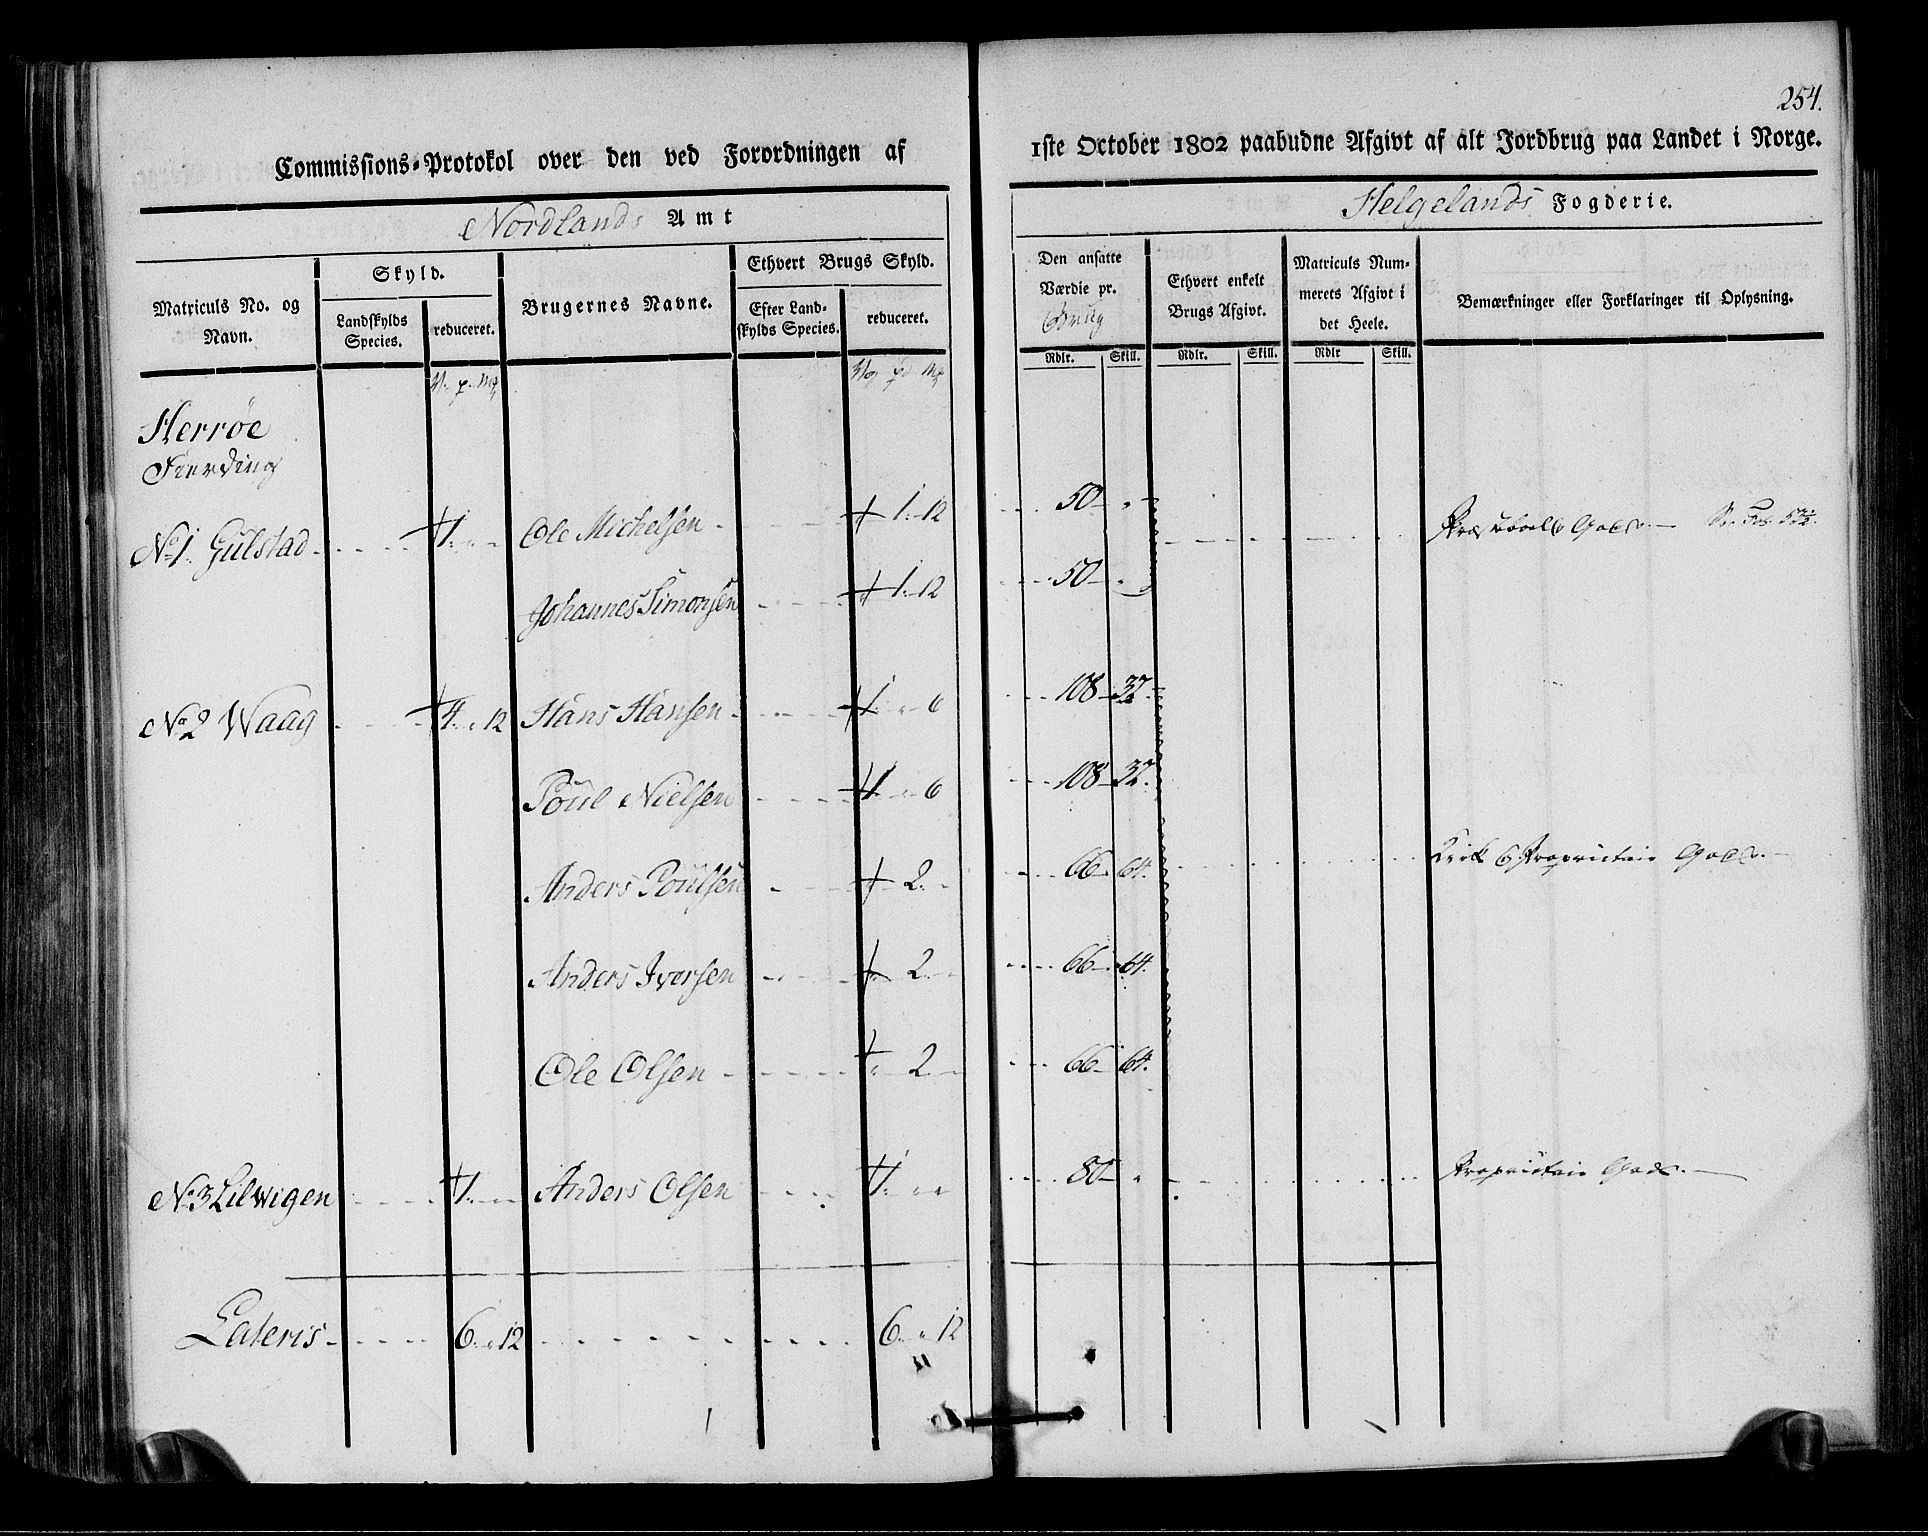 254.
Commissions-Protokol over den ved Forordningen af 1ste October 1802 paabudne Afgivt af alt Jordbrug paa Landet i Norge.
Nordlands Amt Helgelands Fogderie.
Matriculs No. og Navn. Skyld. Landskylds Species. reduceret. Brugernes Navne. Ethvert Brugs Skyld. Efter Landskylds Species. reduceret. Den ansatte Værdie pr. Brug Rdlr. Skill. Ethvert enkelt Brugs Afgivt. Rdlr. Skill. Matriculs Nummerets Afgivt i det Heele. Rdlr Skill. Bemærkninger eller Forklaringer til Oplysning.
Herrøe
Fierding
No 1. Gulstad 1. Ole Michelsen 1. 12 50 Gods
Johannes Simonsen 1. 12 50
No 2 Waag 4. 12 Hans Hansen 1 6 108 32.
Poul Nielsen 1 6 108 32.
Anders Poulsen 2. 66 64. Kirke Proprietair Gods
Anders Iversen 2. 66 64.
Ole Olsen 2 66 64.
No 3 Lilwigen 1. Anders Olsen 1. 80 Proprietair Gods
Lateris 6. 12 6. 12